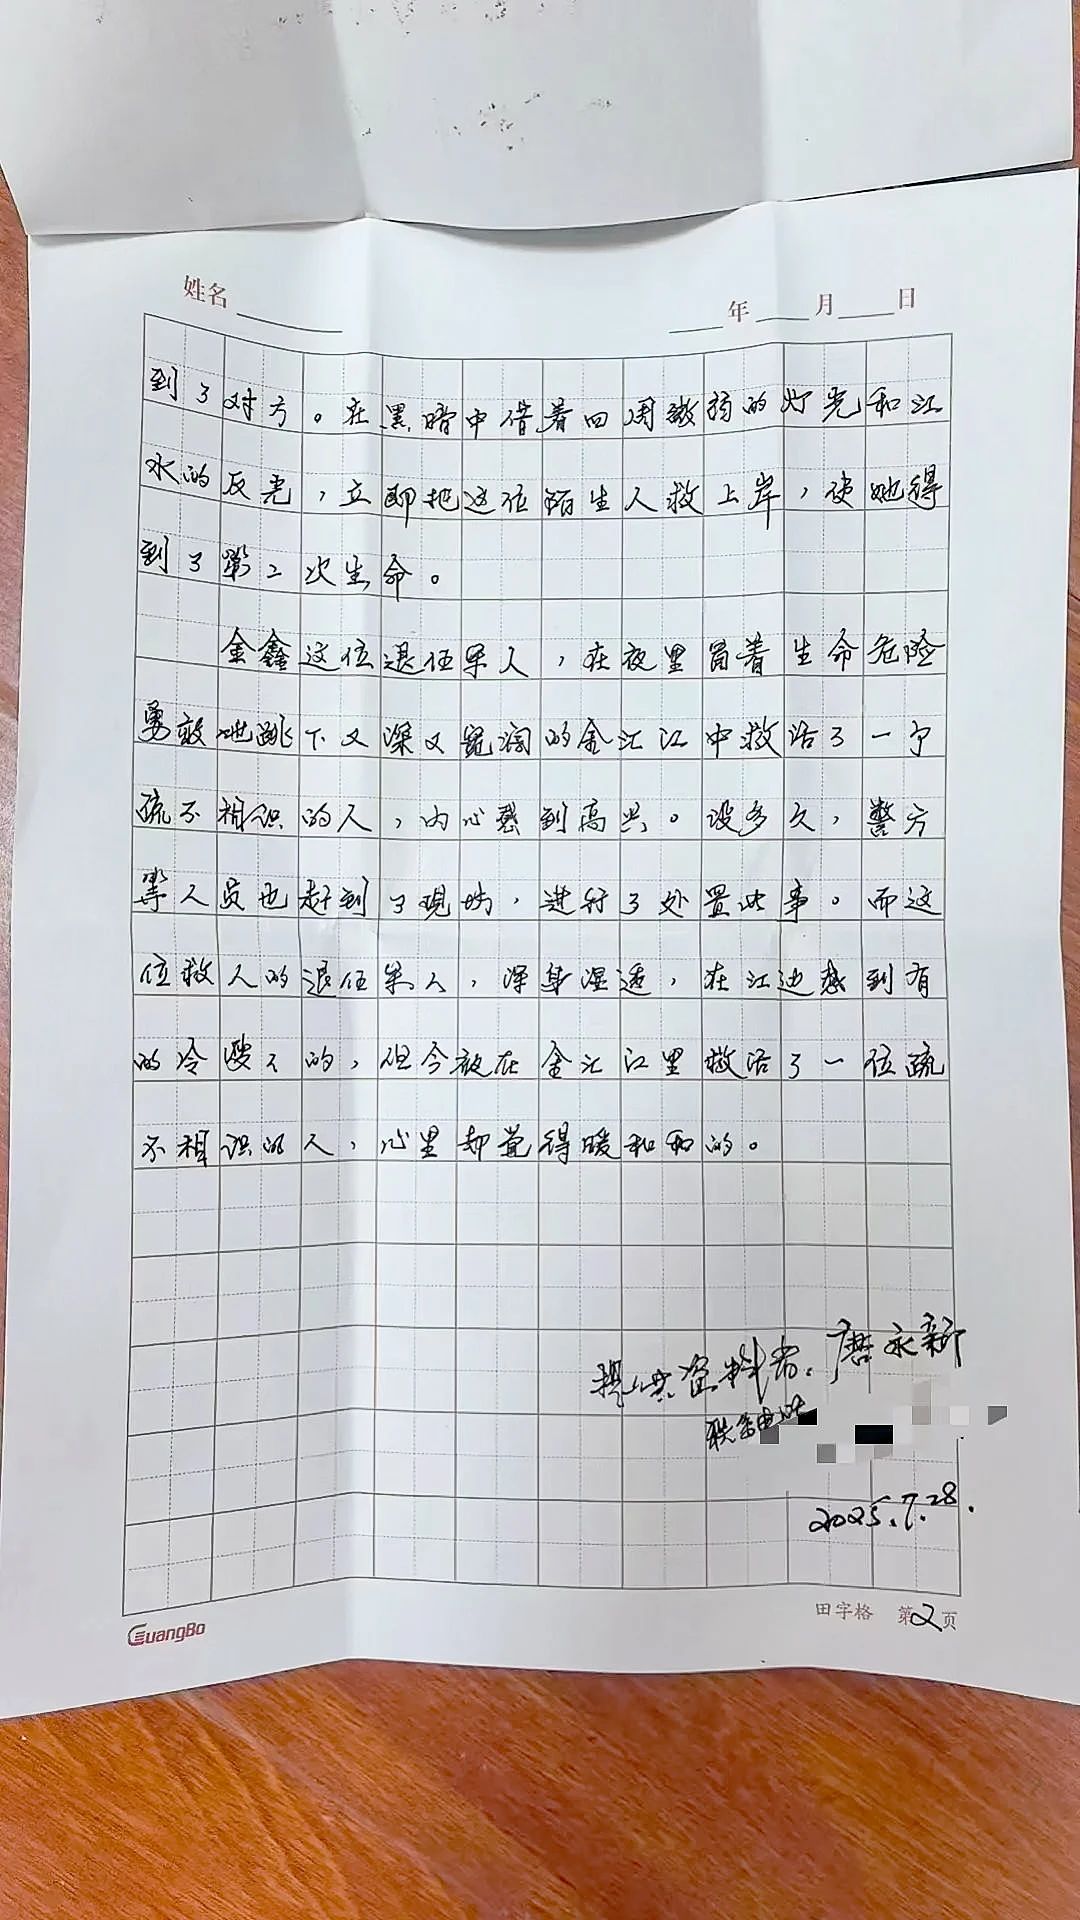 姓名
年 月 日
到了对方。在黑暗中借着四周微弱的灯光和江
水的反光，立即把这位陌生人救上岸，使她得
到了第二次生命。
金鑫这位退伍军人，在夜里冒着生命危险
勇敢地跳下又深又宽阔的金汇江中救活了一个
疏不相识的人，内心感到高兴。没多久，警方
等人员也赶到了现场，进行了处置此事。而这
位救人的退伍军人，浑身湿透，在江边感到有
的冷嗖々的，但今夜在金汇江里救活了一位疏
不相识的人，心里却觉得暖和和的。
提供资料者：唐永新
联系电话
2025.7.28.
GuangBo
田字格 第2页